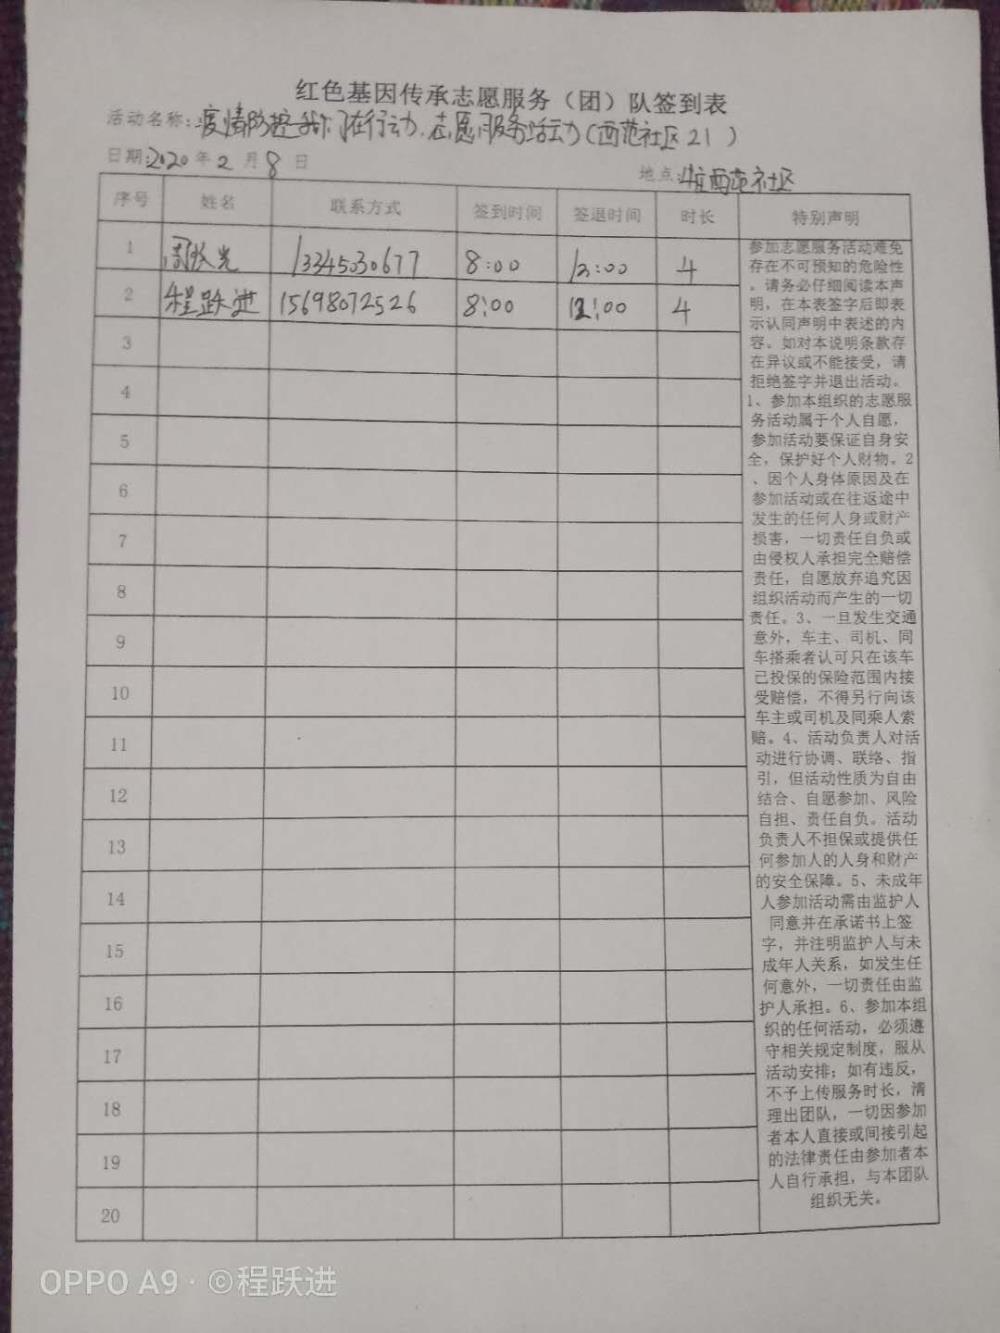 红色基因传承志愿服务（团）队签到表
活动名称：疫情防控我们在行动，志愿服务活动（西范社区21）
日期：2020年2月8日 地点：西范社区
序号 姓名 联系方式 签到时间 签退时间 时长 特别声明
1 周 光 13345030677 8:00 12:00 4
2 程跃进 15698072526 8:00 12:00 4
3
4
5
6
7
8
9
10
11
12
13
14
15
16
17
18
19
20
参加志愿服务活动难免
存在不可预知的危险性
。请务必仔细阅读本声
明，在本表签字后即表
示认同声明中表述的内
容。如对本说明条款存
在异议或不能接受，请
拒绝签字并退出活动。
1、参加本组织的志愿服
务活动属于个人自愿，
参加活动要保证自身安
全，保护好个人财物。2
、因个人身体原因及在
参加活动或在往返途中
发生的任何人身或财产
损害，一切责任自负或
由侵权人承担完全赔偿
责任，自愿放弃追究因
组织活动而产生的一切
责任。3、一旦发生交通
意外，车主、司机、同
车搭乘者认可只在该车
已投保的保险范围内接
受赔偿，不得另行向该
车主或司机及同乘人索
赔。4、活动负责人对活
动进行协调、联络、指
引，但活动性质为自由
结合、自愿参加、风险
自担、责任自负。活动
负责人不担保或提供任
何参加人的人身和财产
的安全保障。5、未成年
人参加活动需由监护人
同意并在承诺书上签
字，并注明监护人与未
成年人关系，如发生任
何意外，一切责任由监
护人承担。6、参加本组
织的任何活动，必须遵
守相关规定制度，服从
活动安排；如有违反，
不予上传服务时长，清
理出团队，一切因参加
者本人直接或间接引起
的法律责任由参加者本
人自行承担，与本团队
组织无关。
OPPO A9 · ©程跃进